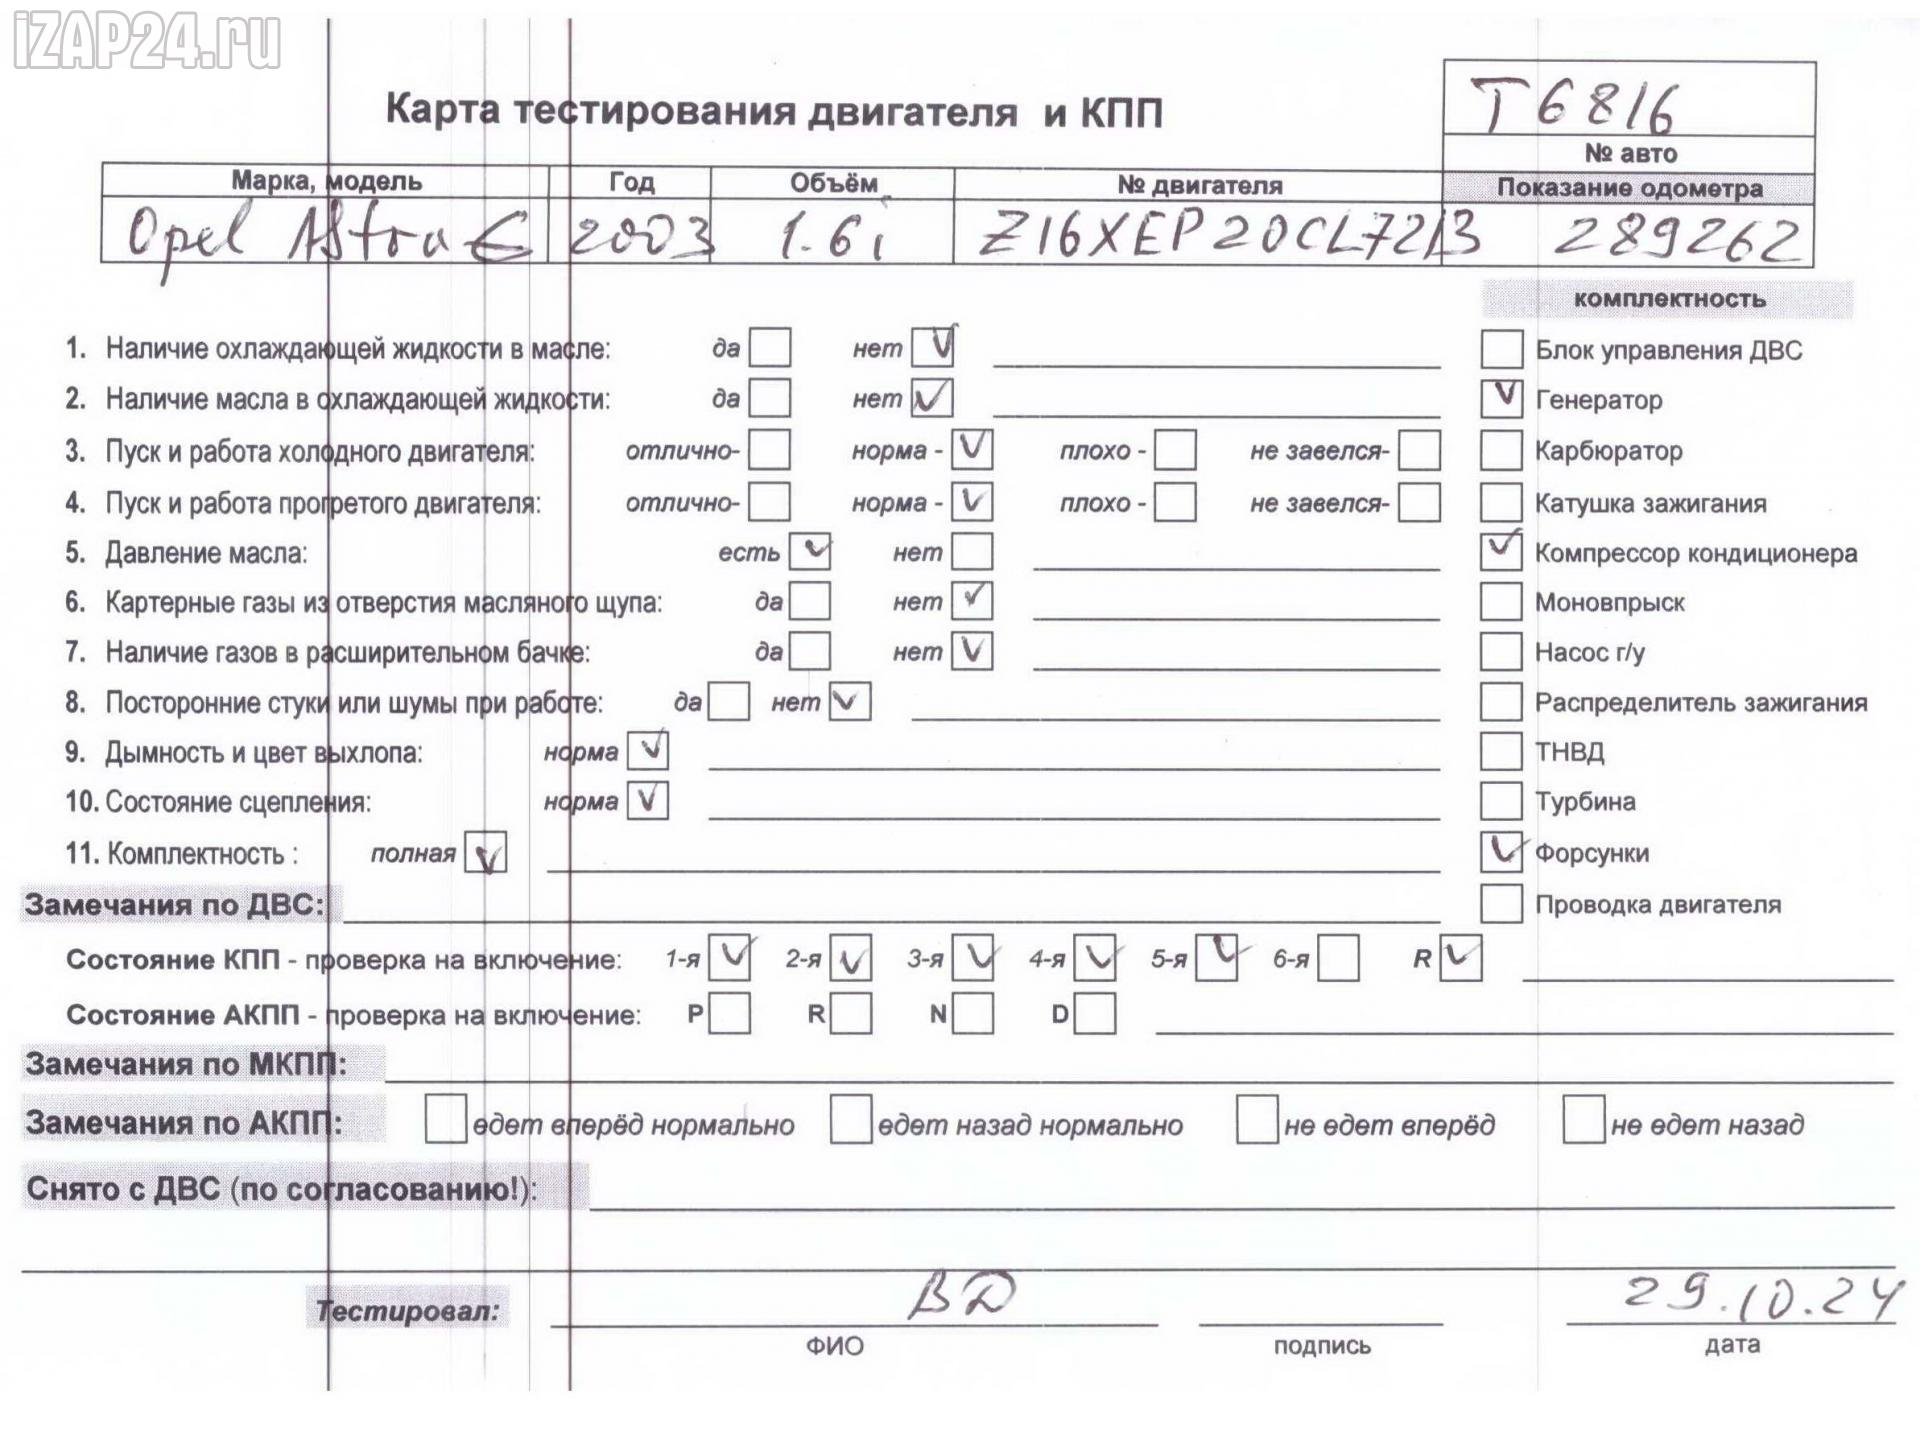 iZAP24.ru
T6816
Карта тестирования двигателя и КПП
№ авто
Марка, модель Год Объём № двигателя Показание одометра
Opel Astra G 2003 1.6i Z16XEP20CL7213 289262
комплектность
1. Наличие охлаждающей жидкости в масле: да нет ✓ Блок управления ДВС
2. Наличие масла в охлаждающей жидкости: да нет ✓ ✓ Генератор
3. Пуск и работа холодного двигателя: отлично- норма - ✓ плохо - не завелся- Карбюратор
4. Пуск и работа прогретого двигателя: отлично- норма - ✓ плохо - не завелся- Катушка зажигания
5. Давление масла: есть ✓ нет ✓ Компрессор кондиционера
6. Картерные газы из отверстия масляного щупа: да нет ✓ Моновпрыск
7. Наличие газов в расширительном бачке: да нет ✓ Насос г/у
8. Посторонние стуки или шумы при работе: да нет ✓ Распределитель зажигания
9. Дымность и цвет выхлопа: норма ✓ ТНВД
10. Состояние сцепления: норма ✓ Турбина
11. Комплектность : полная ✓ ✓ Форсунки
Замечания по ДВС: Проводка двигателя
Состояние КПП - проверка на включение: 1-я ✓ 2-я ✓ 3-я ✓ 4-я ✓ 5-я ✓ 6-я R ✓
Состояние АКПП - проверка на включение: P R N D
Замечания по МКПП:
Замечания по АКПП: едет вперёд нормально едет назад нормально не едет вперёд не едет назад
Снято с ДВС (по согласованию!):
Тестировал: ВД 29.10.24
ФИО подпись дата